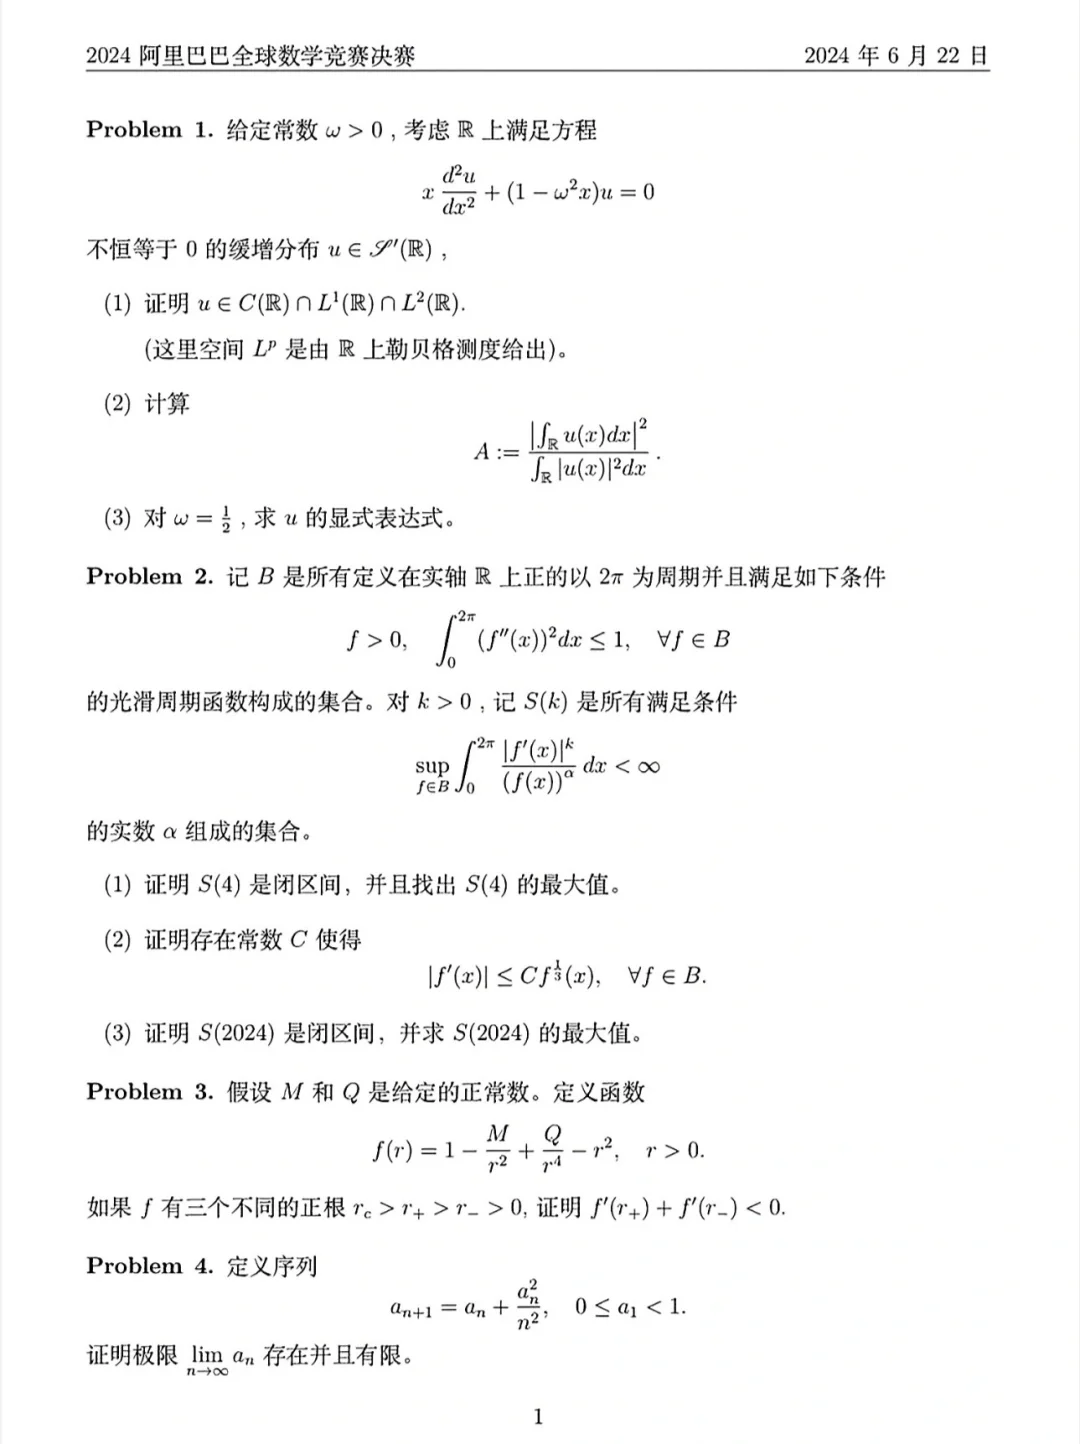 2024 阿里巴巴全球数学竞赛决赛 2024 年 6 月 22 日
Problem 1. 给定常数 ω > 0 , 考虑 ℝ 上满足方程
x d²u/dx² + (1 − ω²x)u = 0
不恒等于 0 的缓增分布 u ∈ 𝒮′(ℝ) ,
(1) 证明 u ∈ C(ℝ) ∩ L¹(ℝ) ∩ L²(ℝ).
(这里空间 Lᵖ 是由 ℝ 上勒贝格测度给出)。
(2) 计算
A := |∫_ℝ u(x)dx|² / ∫_ℝ |u(x)|²dx .
(3) 对 ω = 1/2 , 求 u 的显式表达式。
Problem 2. 记 B 是所有定义在实轴 ℝ 上正的以 2π 为周期并且满足如下条件
f > 0, ∫_0^{2π} (f″(x))²dx ≤ 1, ∀f ∈ B
的光滑周期函数构成的集合。对 k > 0 , 记 S(k) 是所有满足条件
sup_{f∈B} ∫_0^{2π} |f′(x)|^k / (f(x))^α dx < ∞
的实数 α 组成的集合。
(1) 证明 S(4) 是闭区间，并且找出 S(4) 的最大值。
(2) 证明存在常数 C 使得
|f′(x)| ≤ Cf^{1/3}(x), ∀f ∈ B.
(3) 证明 S(2024) 是闭区间，并求 S(2024) 的最大值。
Problem 3. 假设 M 和 Q 是给定的正常数。定义函数
f(r) = 1 − M/r² + Q/r⁴ − r², r > 0.
如果 f 有三个不同的正根 r_c > r_+ > r_− > 0, 证明 f′(r_+) + f′(r_−) < 0.
Problem 4. 定义序列
a_{n+1} = a_n + a_n²/n², 0 ≤ a_1 < 1.
证明极限 lim_{n→∞} a_n 存在并且有限。
1